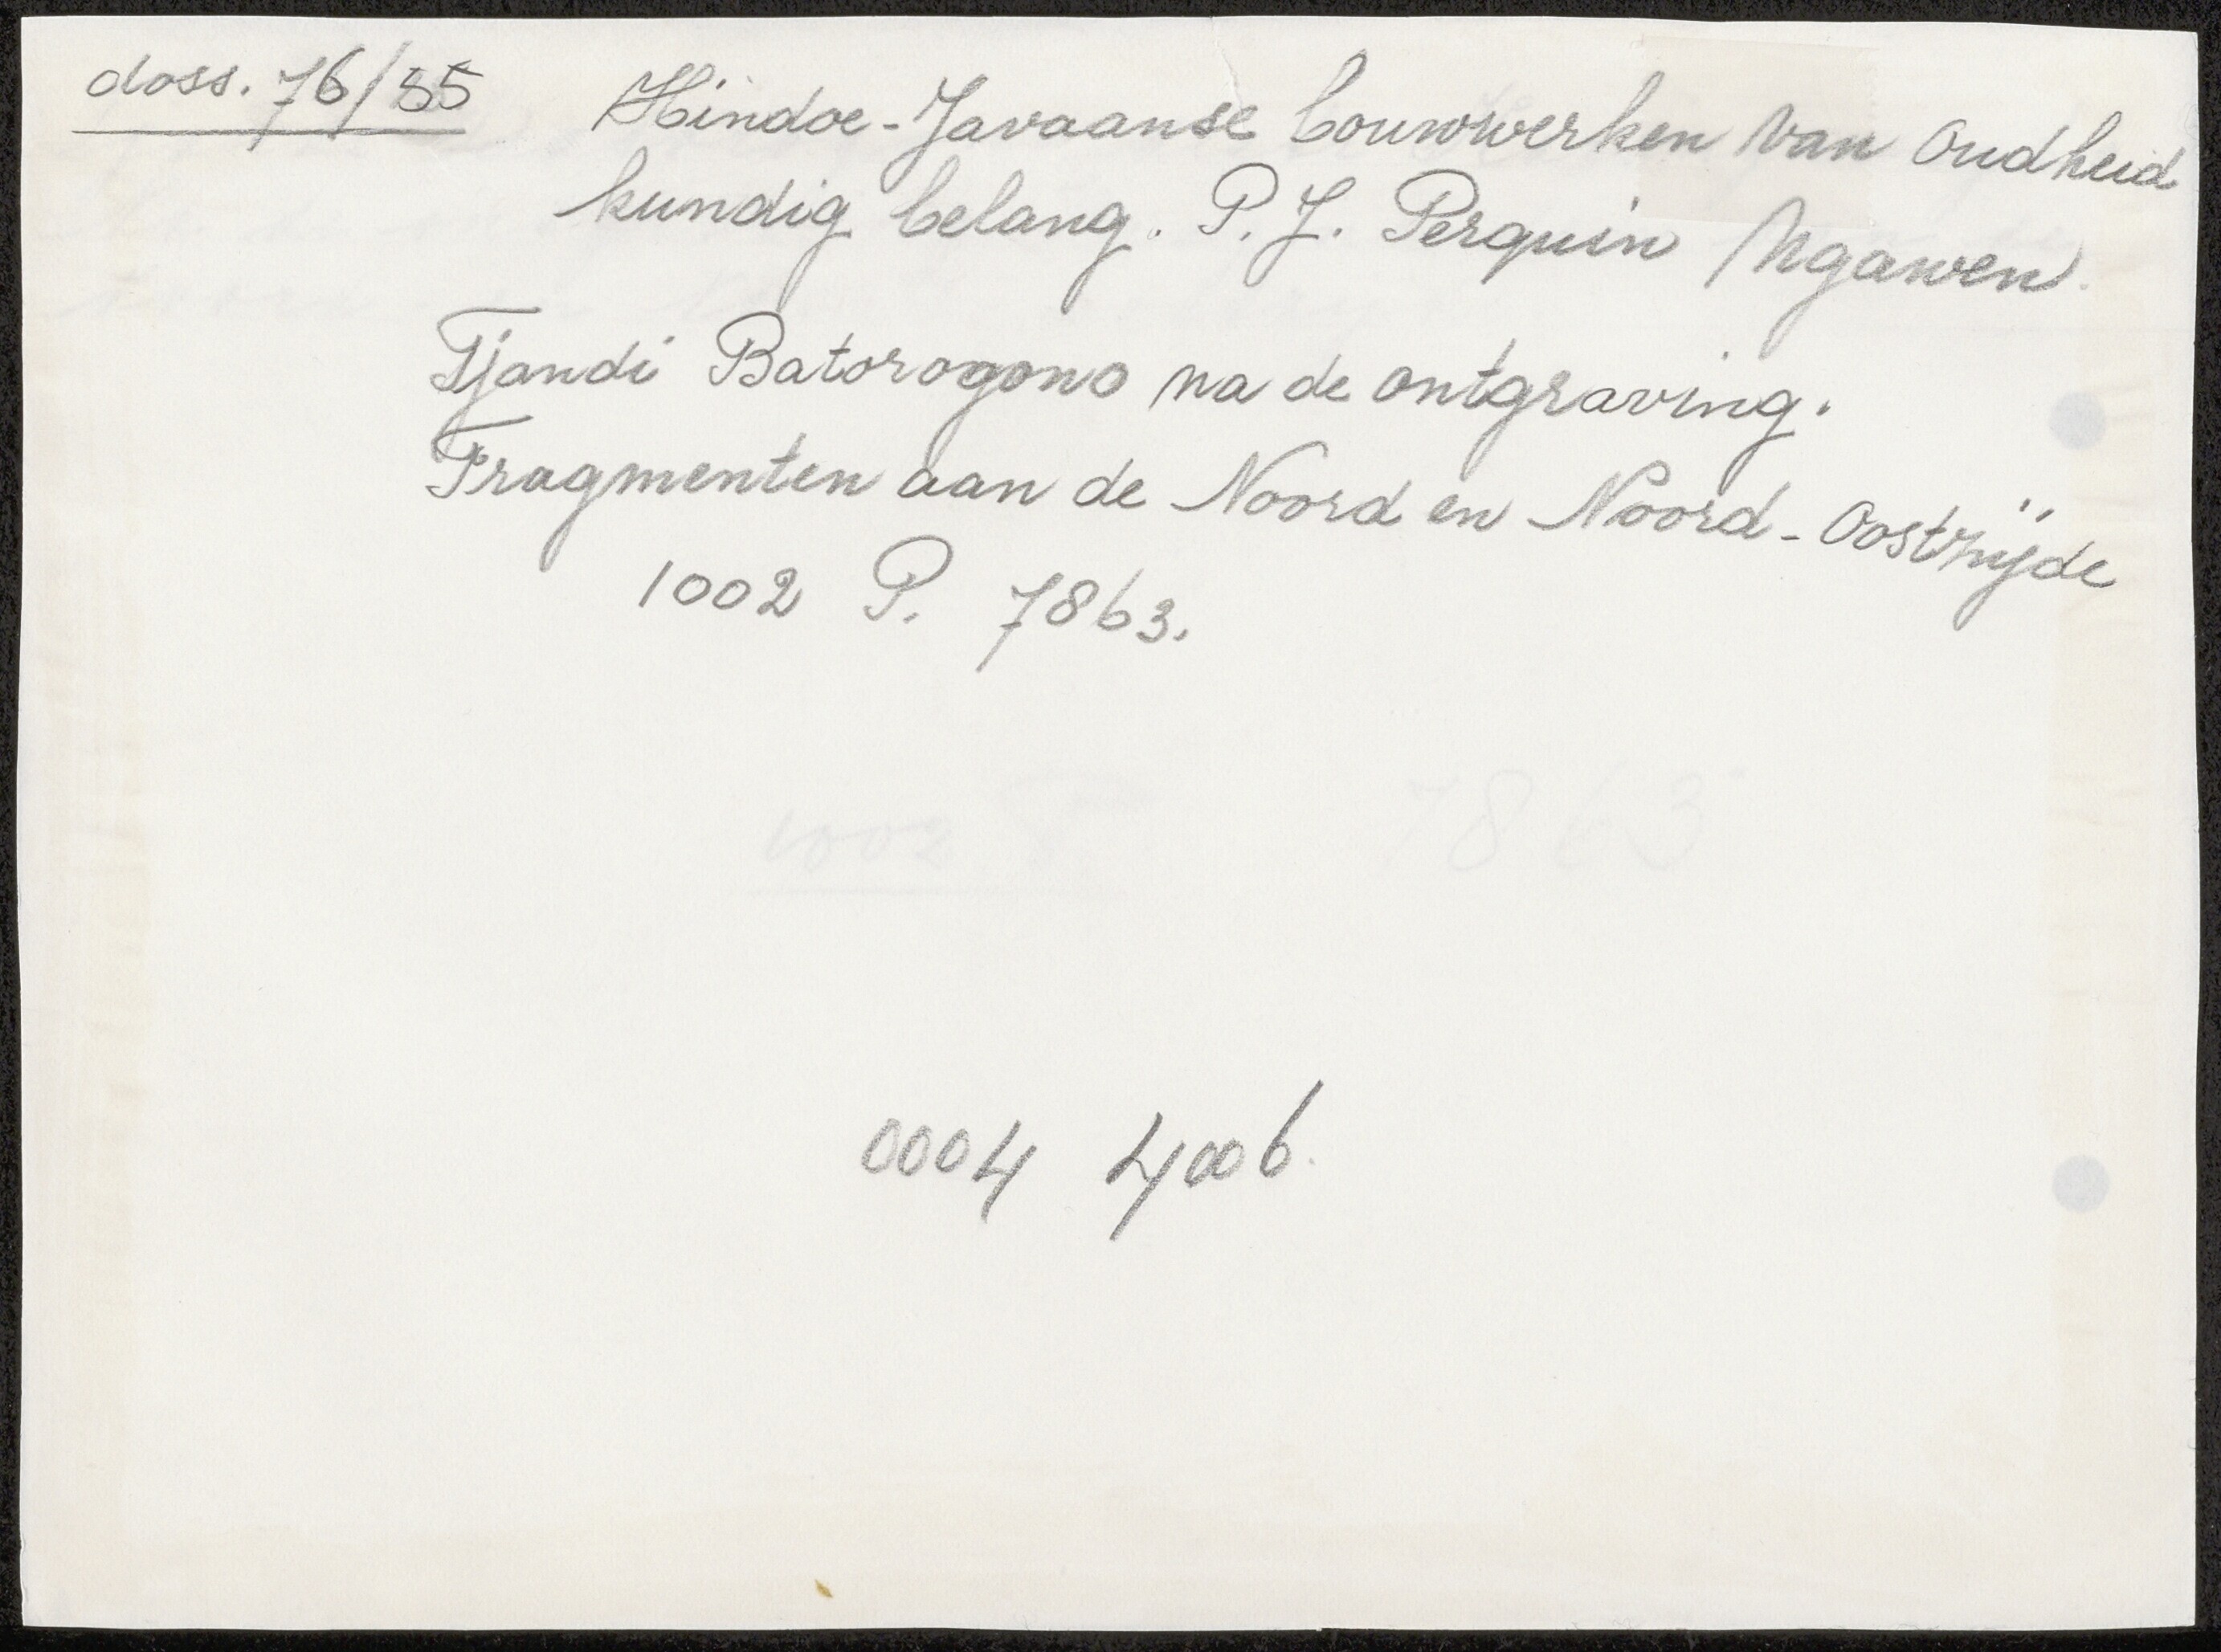 doss. 76/35
Hindoe-Javaanse bouwwerken van Oudheid
kundig belang. P.J. Perquin Ngawen.
Tjandi Batorogono na de ontgraving.
Fragmenten aan de Noord en Noord-Oostzijde
1002 P. 7863.
1002 7863
0004 4006